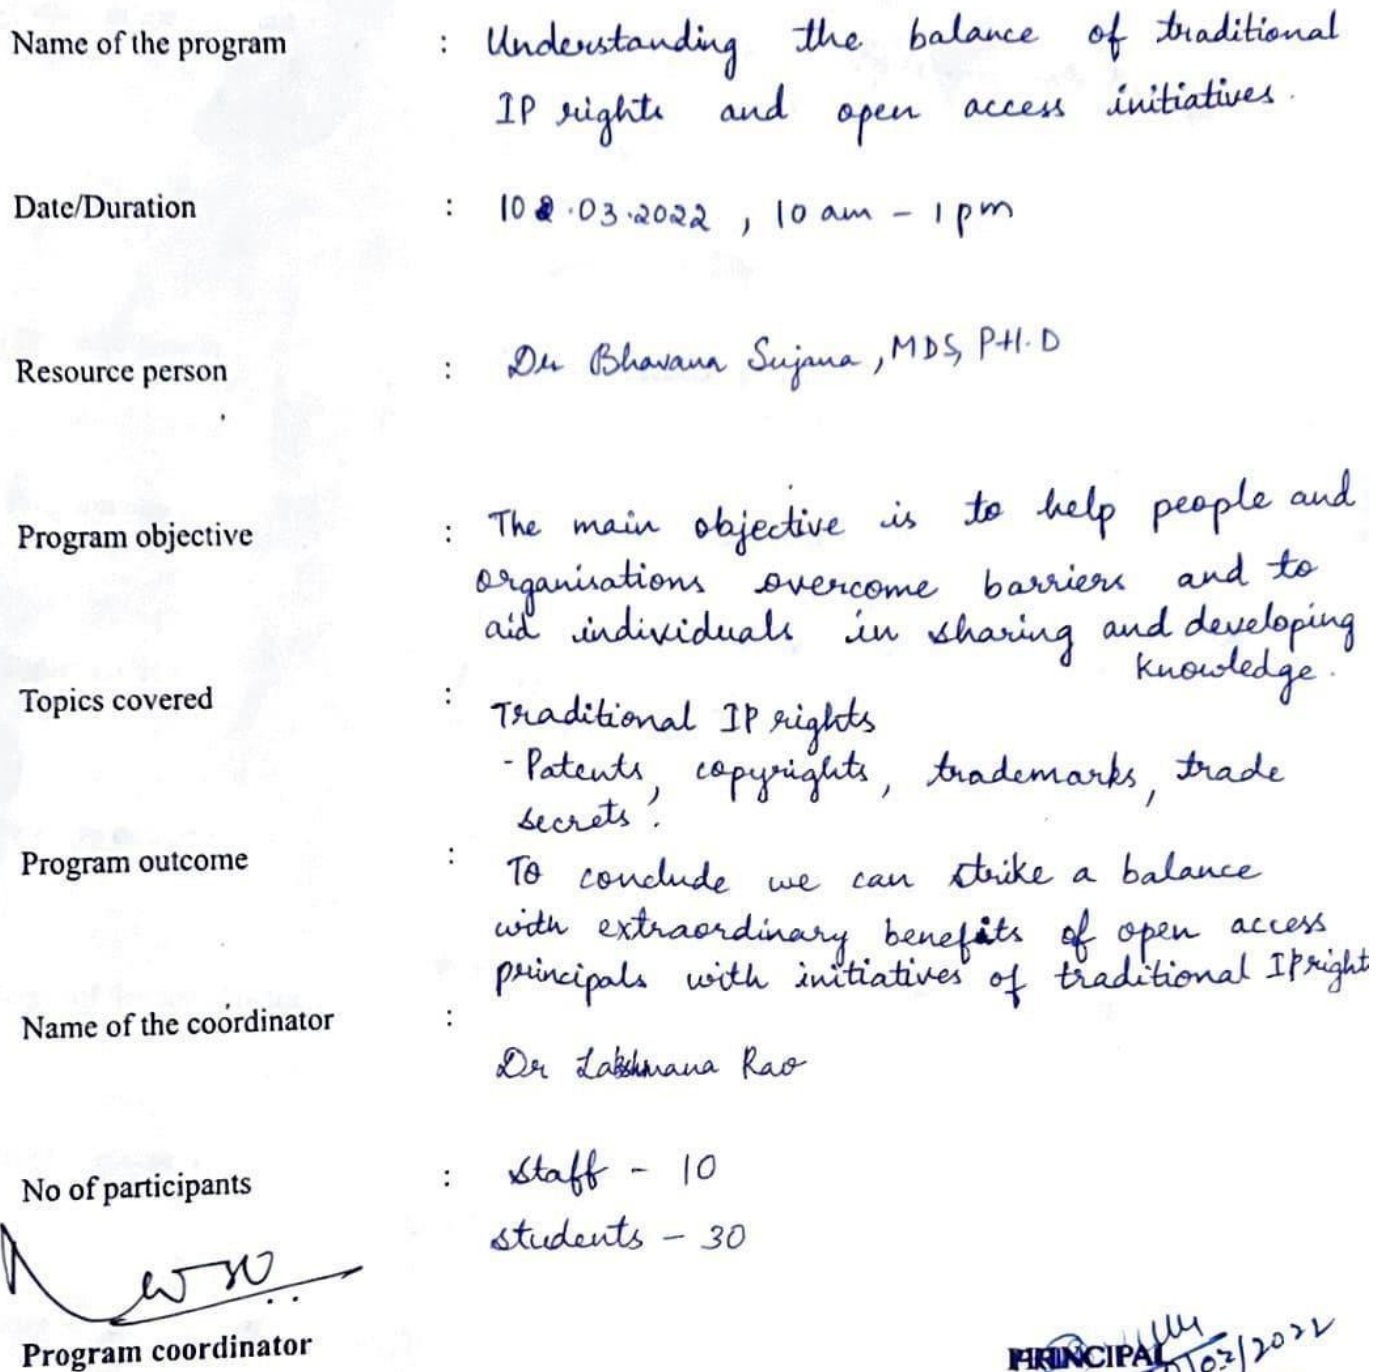 Name of the program : Understanding the balance of traditional
IP rights and open access initiatives.
Date/Duration : 10.03.2022, 10 am - 1 pm
Resource person : Dr Bhavana Sujana, MDS, PH.D
Program objective : The main objective is to help people and
organisations overcome barriers and to
aid individuals in sharing and developing
knowledge.
Topics covered : Traditional IP rights
- Patents, copyrights, trademarks, trade
secrets.
Program outcome : To conclude we can strike a balance
with extraordinary benefits of open access
principals with initiatives of traditional IP right
Name of the coordinator :
Dr Lakshmana Rao
No of participants : staff - 10
students - 30
Program coordinator
PRINCIPAL